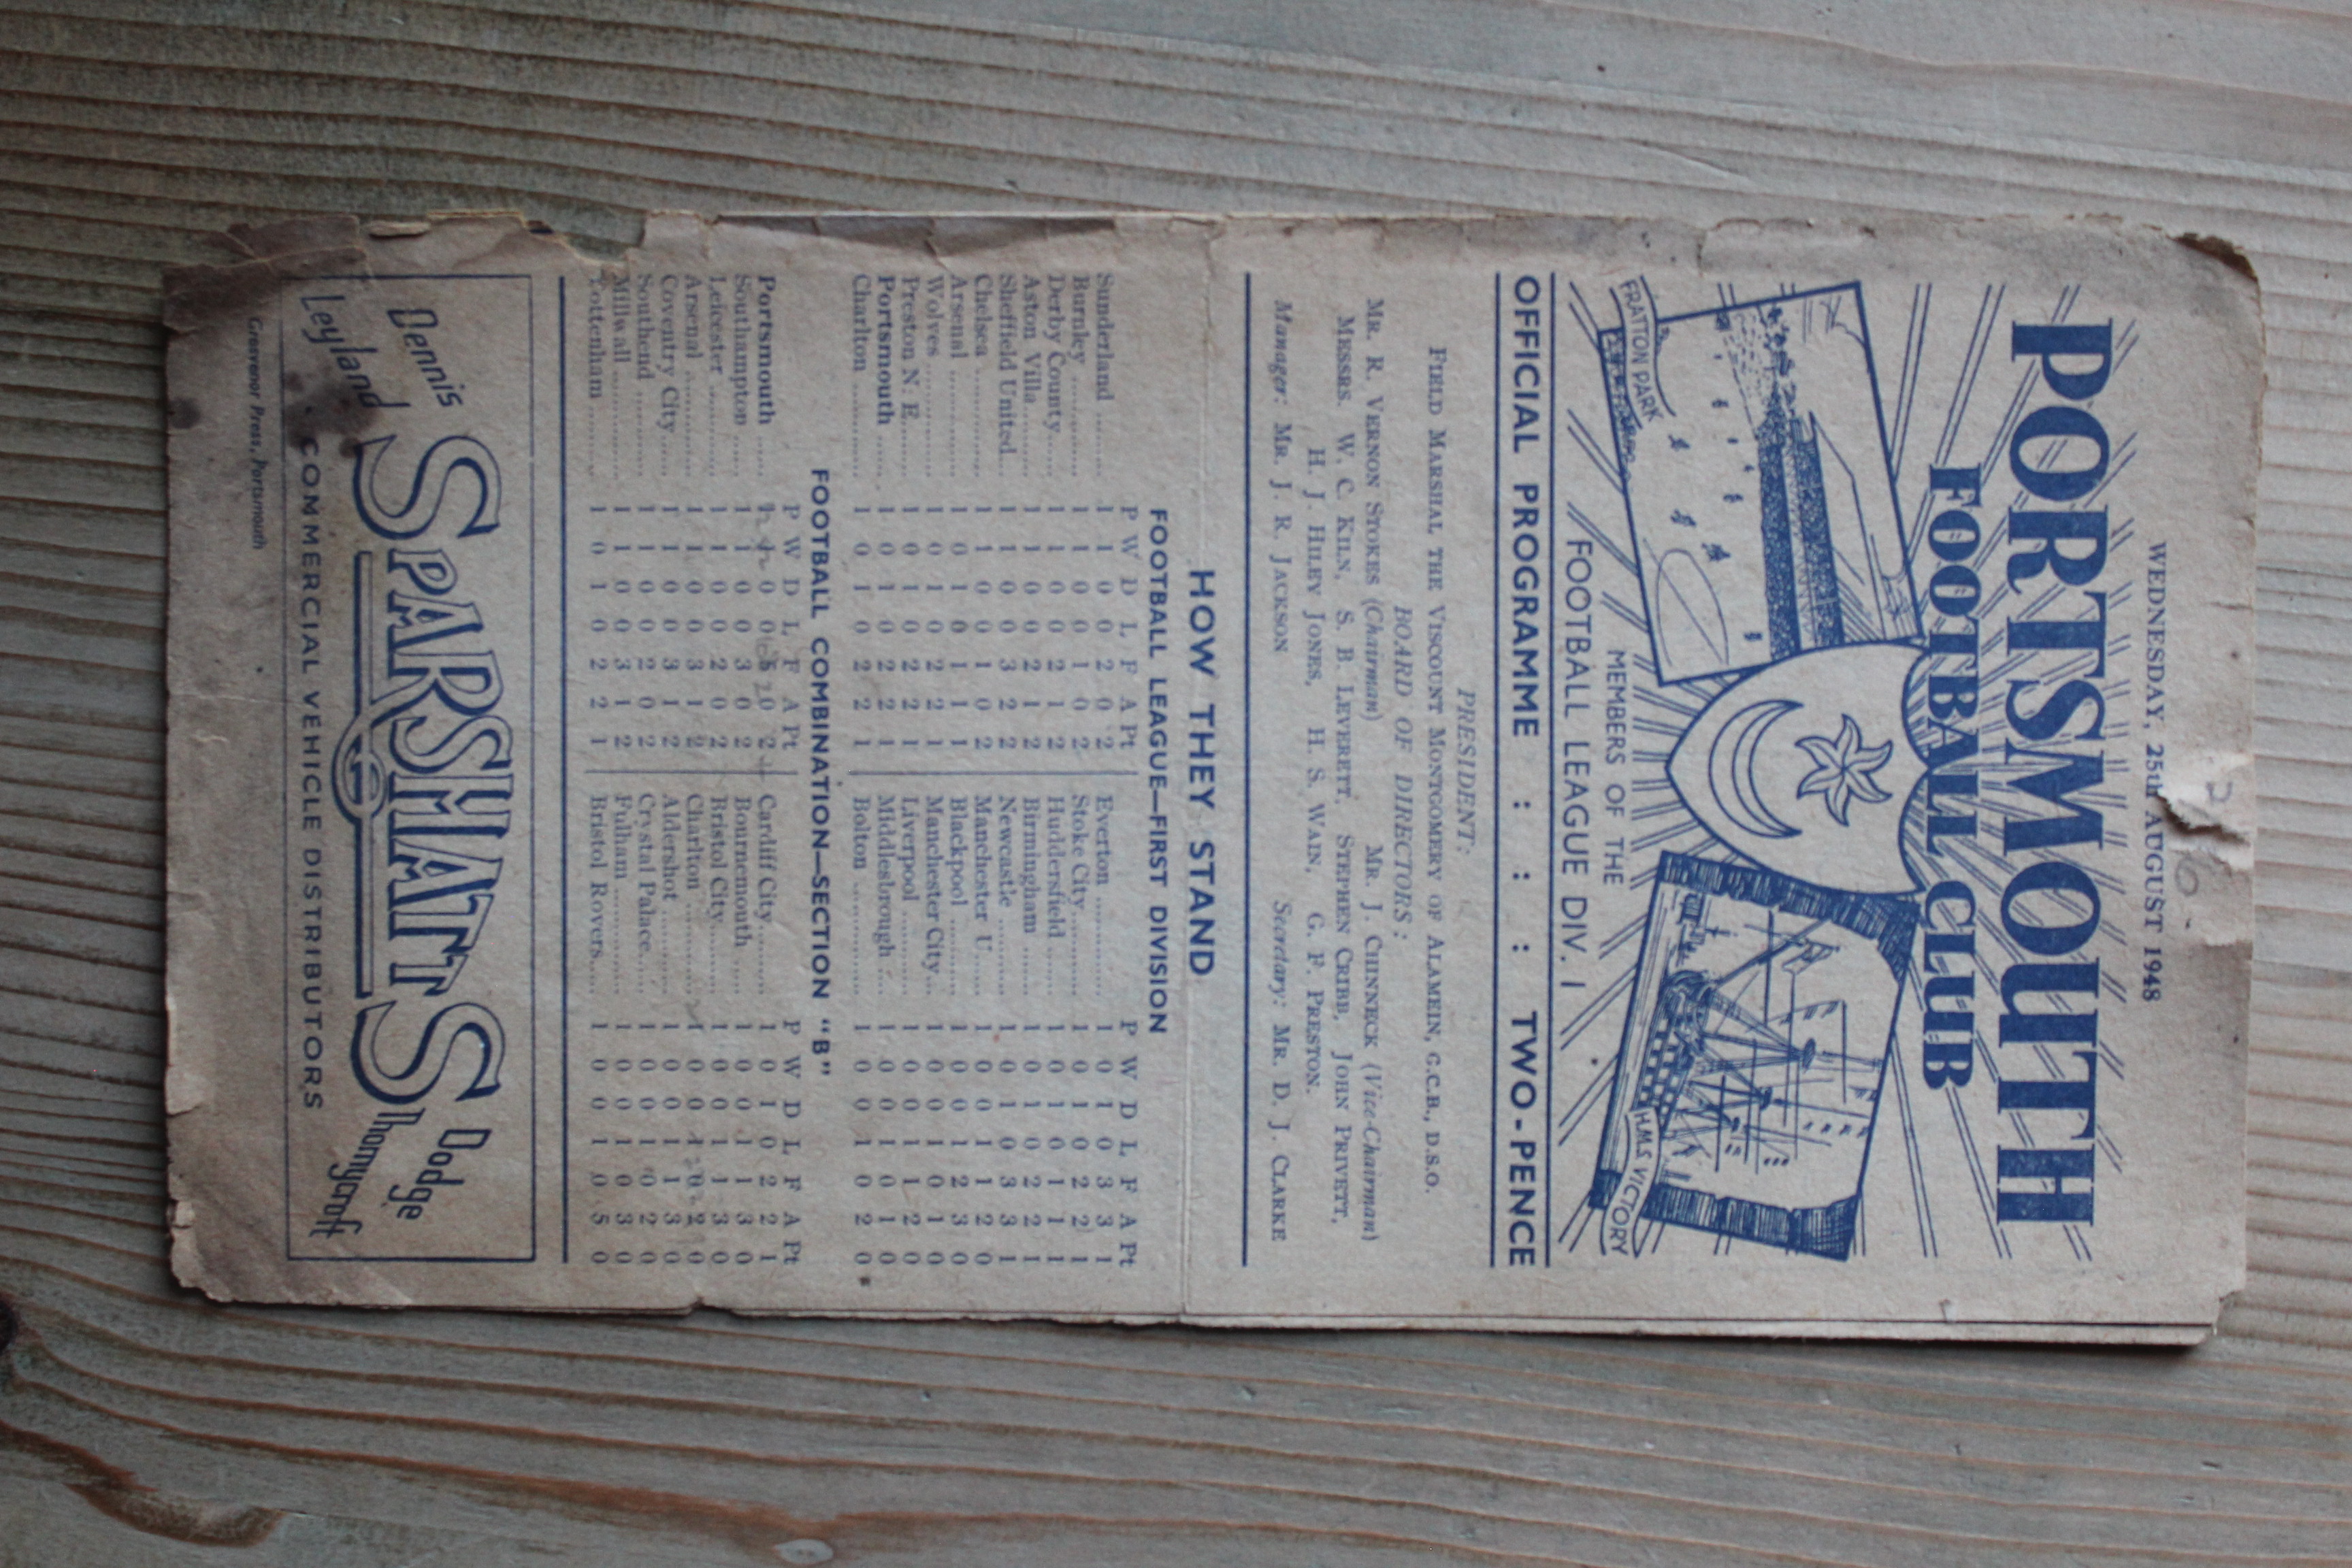 WEDNESDAY, 25th AUGUST 1948
PORTSMOUTH
FOOTBALL CLUB
FRATTON PARK
H.M.S. VICTORY
MEMBERS OF THE
FOOTBALL LEAGUE DIV. I
OFFICIAL PROGRAMME : : : : TWO-PENCE
PRESIDENT:
FIELD MARSHAL THE VISCOUNT MONTGOMERY OF ALAMEIN, G.C.B., D.S.O.
BOARD OF DIRECTORS:
MR. R. VERNON STOKES (Chairman) MR. J. CHINNECK (Vice-Chairman)
MESSRS. W. C. KILN, S. B. LEVERETT, STEPHEN CRIBB, JOHN PRIVETT,
H. J. HILEY JONES, H. S. WAIN, G. F. PRESTON.
Manager: MR. J. R. JACKSON Secretary: MR. D. J. CLARKE
HOW THEY STAND
FOOTBALL LEAGUE—FIRST DIVISION
P W D L F A Pt P W D L F A Pt
Sunderland ......... 1 1 0 0 2 0 2 Everton ............ 1 0 1 0 3 3 1
Burnley ............ 1 1 0 0 1 0 2 Stoke City......... 1 0 1 0 2 2 1
Derby County...... 1 1 0 0 2 1 2 Huddersfield ...... 1 0 1 0 1 1 1
Aston Villa......... 1 1 0 0 2 1 2 Birmingham ...... 1 0 1 0 2 2 1
Sheffield United... 1 1 0 0 3 2 2 Newcastle ......... 1 0 1 0 3 3 1
Chelsea ............ 1 1 0 0 1 0 2 Manchester U. ... 1 0 0 1 1 2 0
Arsenal ............ 1 0 1 0 1 1 1 Blackpool ......... 1 0 0 1 2 3 0
Wolves ............ 1 0 1 0 2 2 1 Manchester City... 1 0 0 1 0 1 0
Preston N. E....... 1 0 1 0 2 2 1 Liverpool ......... 1 0 0 1 1 2 0
Portsmouth ...... 1 0 1 0 2 2 1 Middlesbrough ... 1 0 0 1 0 1 0
Charlton ............ 1 0 1 0 2 2 1 Bolton ............ 1 0 0 1 0 2 0
FOOTBALL COMBINATION—SECTION "B"
P W D L F A Pt P W D L F A Pt
Portsmouth ...... 1 1 0 0 5 0 2 Cardiff City......... 1 0 1 0 2 2 1
Southampton ...... 1 1 0 0 3 0 2 Bournemouth ...... 1 0 0 1 1 3 0
Leicester ......... 1 1 0 0 2 0 2 Bristol City......... 1 0 0 1 1 3 0
Arsenal ............ 1 1 0 0 3 1 2 Charlton ............ 1 0 0 1 0 2 0
Coventry City...... 1 1 0 0 3 1 2 Aldershot ......... 1 0 0 1 1 3 0
Southend ......... 1 1 0 0 2 0 2 Crystal Palace...... 1 0 0 1 0 2 0
Millwall ............ 1 1 0 0 3 1 2 Fulham ............ 1 0 0 1 0 3 0
Tottenham ......... 1 0 1 0 2 2 1 Bristol Rovers...... 1 0 0 1 0 5 0
Dennis Dodge
SPARSHATTS
Leyland Thornycroft
COMMERCIAL VEHICLE DISTRIBUTORS
Grosvenor Press, Portsmouth